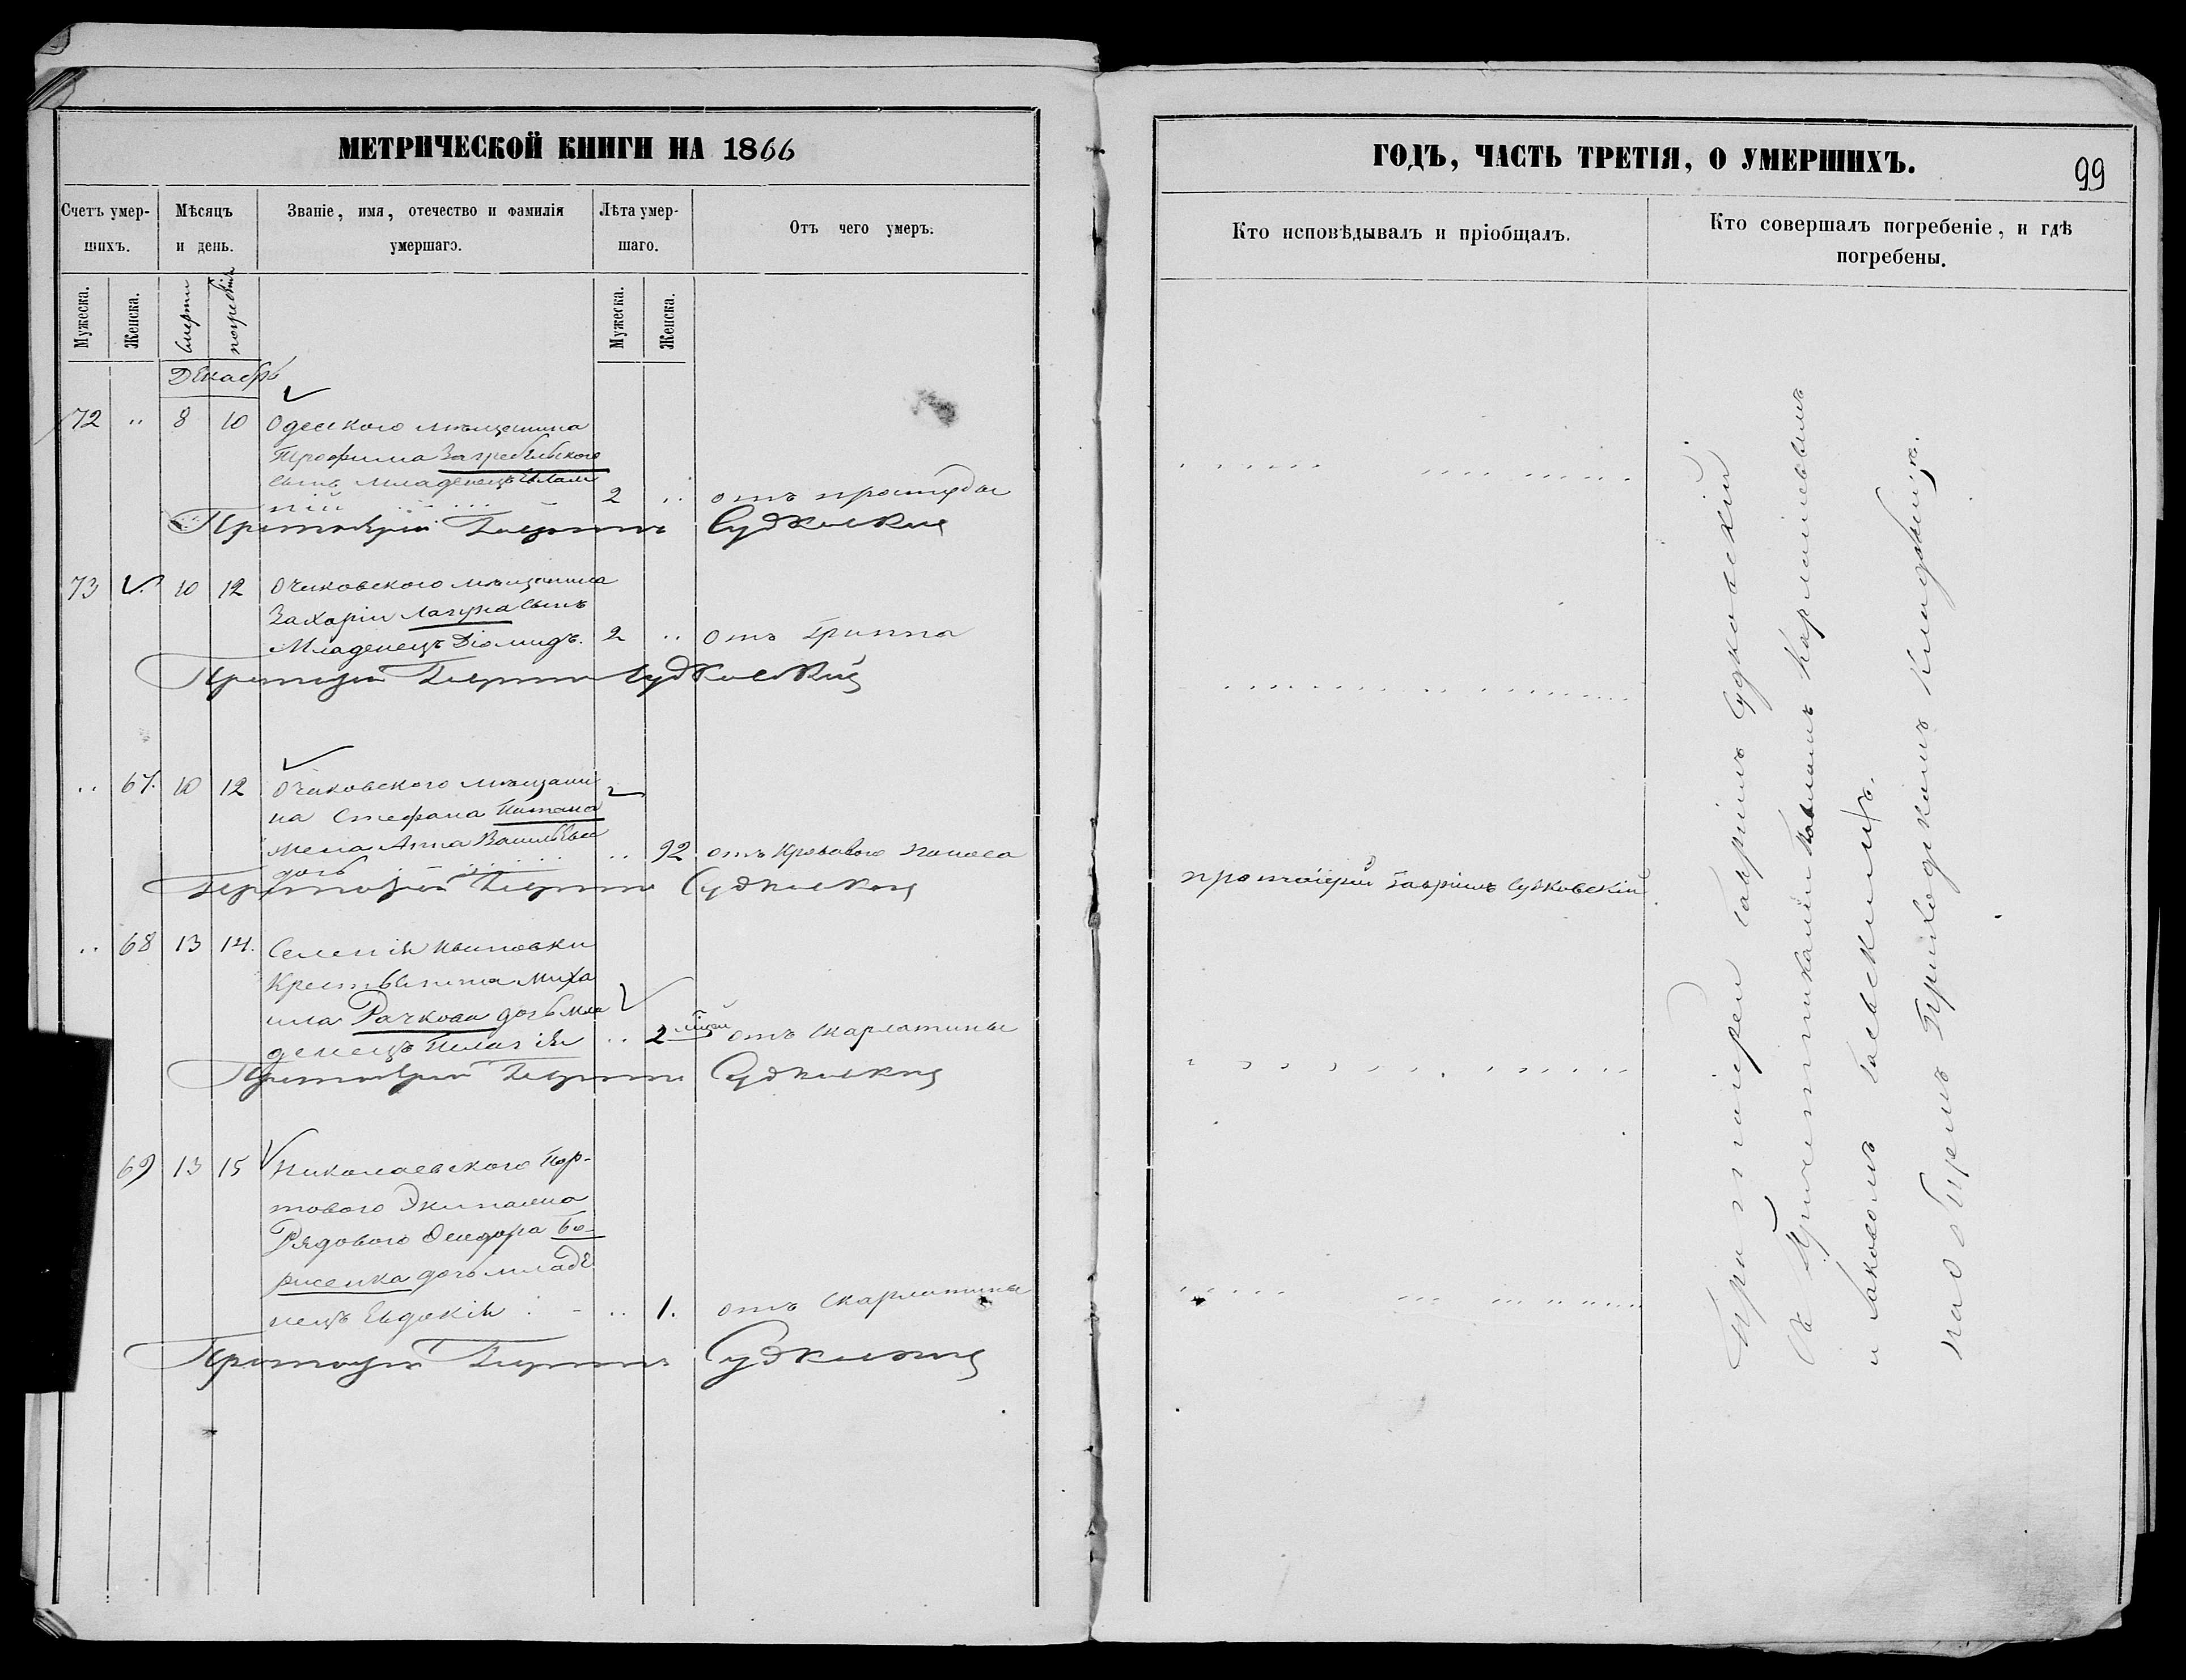 МЕТРИЧЕСКОЙ КНИГИ НА 1866
Счетъ умер-
шихъ.
Мѣсяцъ
и день.
Званіе, имя, отечество и фамилія
умершаго.
Лѣта умер-
шаго.
Отъ чего умеръ.
Мужеска.
Женска.
смерти
погребенія
Мужеска.
Женска.
Декабрь
72 " 8 10 Одесского мѣщанина
Трофима Загребельного
сынъ младенецъ
2 " отъ простуды
Протоіерей Гавріилъ Судковскій
73 10 12 Очаковского мѣщанина
Захаріи Лагуна сынъ
Младенецъ Діомидъ. 2 " отъ Гриппа
Протоіерей Гавріилъ Судковскій
" 67. 10 12 Очаковского мѣщани
на Стефана
жена Анна Васильева
дочь " 92 отъ кроваваго поноса
Протоіерей Гавріилъ Судковскій
" 68 13 14. Селенія
Крестьянина Миха
ила Рачкова дочь мла
денецъ Пелагія " 2 отъ скарлатины
Протоіерей Гавріилъ Судковскій
69 13 15 Николаевского Пор-
тового Экипажа
Рядового Феодора Бо-
рисенка дочь младе
нецъ Евдокія " 1. отъ скарлатины
Протоіерей Гавріилъ Судковскій
ГОДЪ, ЧАСТЬ ТРЕТІЯ, О УМЕРШИХЪ.
99
Кто исповѣдывалъ и пріобщалъ.
Кто совершалъ погребеніе, и гдѣ
погребены.
протоіерей Гавріилъ Судковскій
Протоіерей Гавріилъ Судковскій
Съ Причетниками Павломъ
и Іаковомъ
на общемъ Приходскомъ Кладбищѣ.